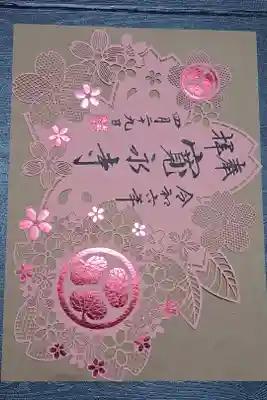 奉拝
令和六年
寛永寺
四月二十九日